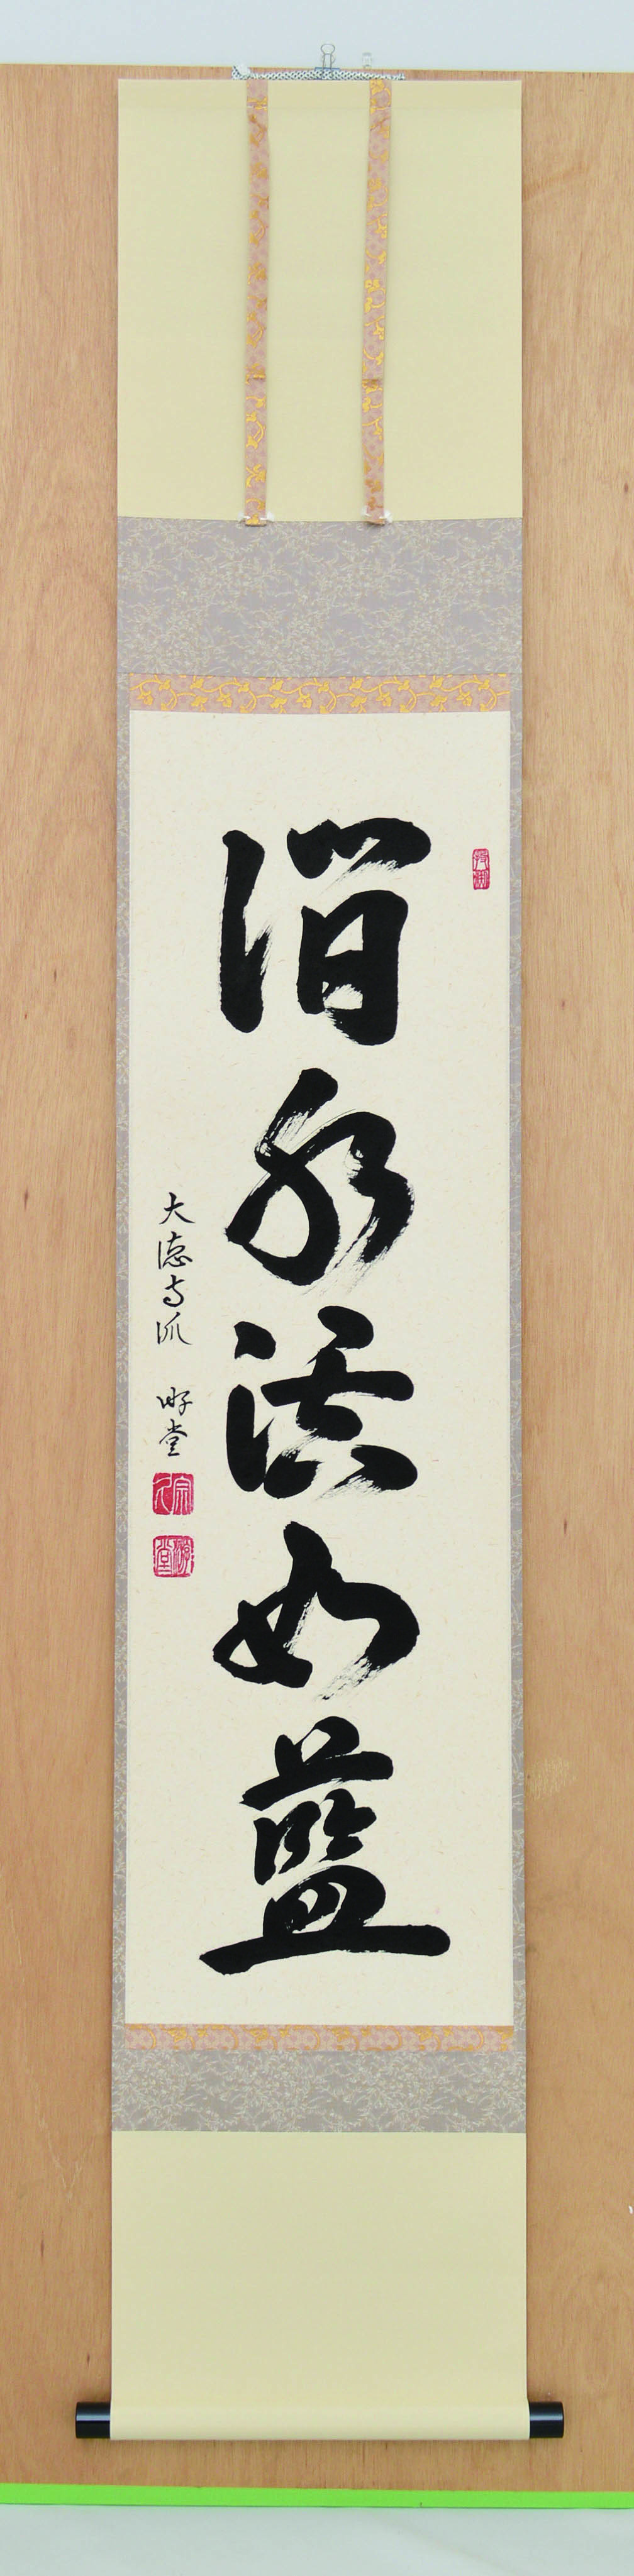 澗水湛如藍
大徳寺派 明堂
宗
堂